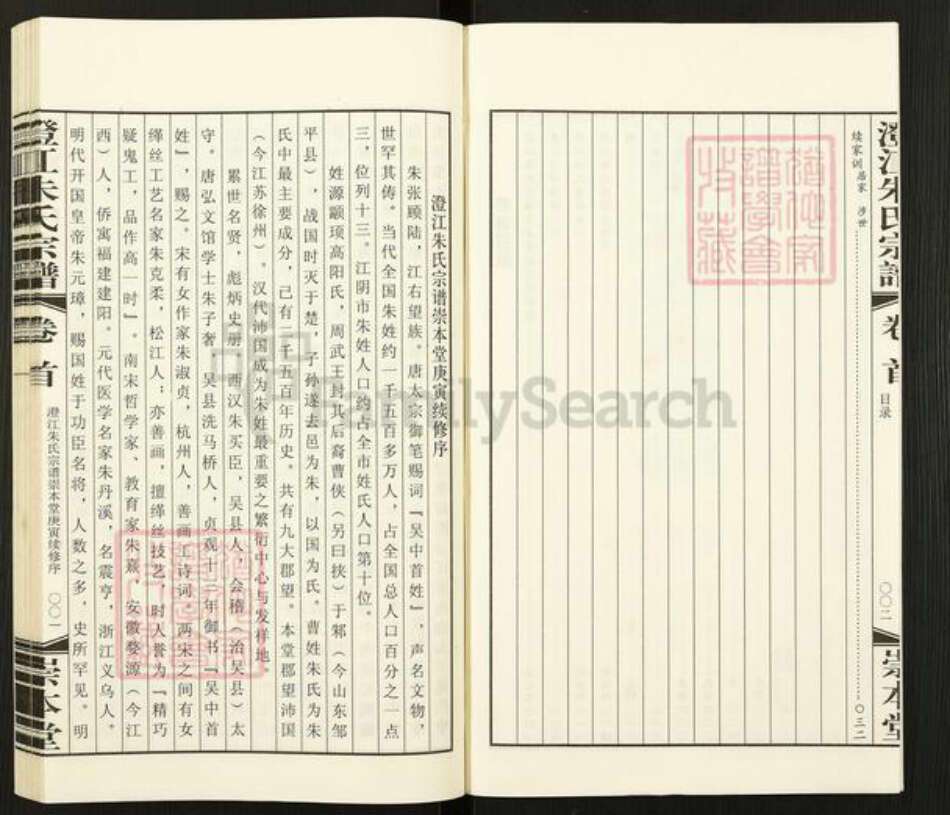 澄江朱氏宗谱 卷首 目录 〇〇二 崇本堂
续家训 居家 涉世……〇三二
FamilySearch
澄江朱氏宗谱崇本堂庚寅续修序
朱张顾陆，江右望族。唐太宗御笔赐词『吴中首姓』，声名文物，
世罕其俦。当代全国朱姓约一千五百多万人，占全国总人口百分之一点
三，位列十三。江阴市朱姓人口约占全市姓氏人口第十位。
姓源颛顼高阳氏，周武王封其后裔曹侠（另曰挟）于邾（今山东邹
平县），战国时灭于楚，子孙遂去邑为朱，以国为氏。曹姓朱氏为朱
氏中最主要成分，己有二千五百年历史。共有九大郡望。本堂郡望沛国
（今江苏徐州）。汉代沛国成为朱姓最重要之繁衍中心与发样地。
累世名贤，彪炳史册。西汉朱买臣，吴县人，会稽（治吴县）太
守。唐弘文馆学士朱子奢，吴县洗马桥人，贞观十二年御书『吴中首
姓』，赐之。宋有女作家朱淑贞，杭州人，善画工诗词。两宋之间有女
缂丝工艺名家朱克柔，松江人；亦善画，擅缂丝技艺，时人誉为『精巧
疑鬼工，品作高一时』。南宋哲学家、教育家朱熹，安徽婺源（今江
西）人，侨寓福建建阳。元代医学名家朱丹溪，名震亨，浙江义乌人。
明代开国皇帝朱元璋，赐国姓于功臣名将，人数之多，史所罕见。明
澄江朱氏宗谱 卷首 澄江朱氏宗谱崇本堂庚寅续修序 〇〇一 崇本堂